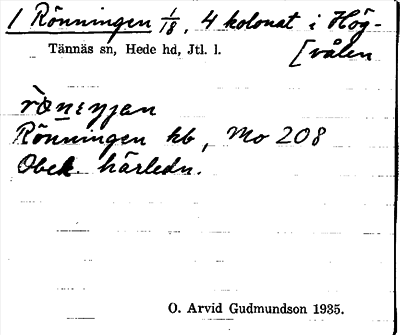 1 Rönningen 1/18, 4 kolonat i Hög-
[vålen
Tännäs sn, Hede hd, Jtl. l.
Rönningen hb, Mo 208
Obek. härledn.
O. Arvid Gudmundson 1935.